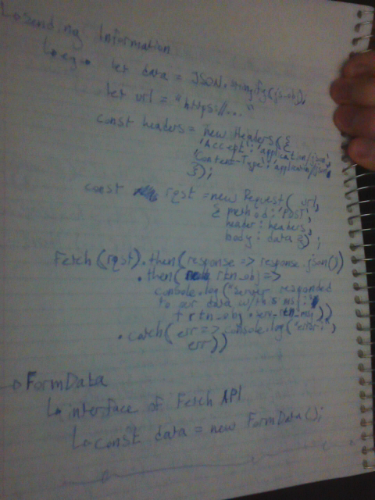 ↳Sending Information
↳eg. let data = JSON.stringify(
let url = "https://..."
const headers = new Headers({
'Accept': 'application/json',
'Content-Type': 'application/json'
});
const rqst = new Request( url,
{ method: 'POST',
header: headers,
body: data });
Fetch(rqst).then(response => response.json())
.then( rtn_obj =>
console.log("Server responded
to our data w/ this msg:"
+ rtn_obj.
.catch( err => console.log('error:',
err))
FormData
↳ interface of Fetch API
↳const data = new FormData();